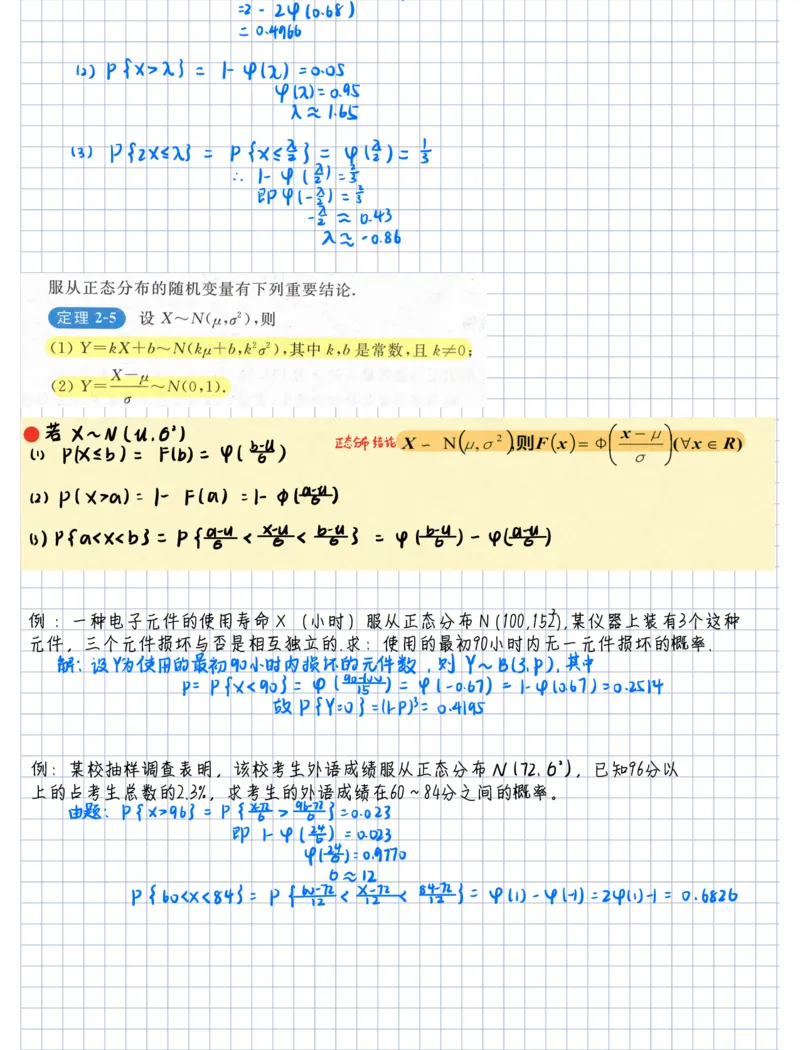 =2 - 2φ(0.68)
= 0.4966
(2) P{X>λ} = 1-φ(λ) = 0.05
φ(λ)=0.95
λ≈1.65
(3) P{2X≤λ} = P{X≤λ/2} = φ(λ/2) = 1/3
∴ 1-φ(λ/2)=2/3
即φ(-λ/2)=2/3
-λ/2 ≈ 0.43
λ≈-0.86
服从正态分布的随机变量有下列重要结论.
定理 2-5 设 X~N(μ,σ²),则
(1) Y=kX+b~N(kμ+b,k²σ²),其中 k,b 是常数,且 k≠0;
(2) Y=(X-μ)/σ~N(0,1).
若 X~N(μ,σ²)
正态分布结论 X ~ N(μ,σ²),则F(x)=Φ((x-μ)/σ)(∀x∈R)
(1) P(X≤b) = F(b) = φ((b-μ)/σ)
(2) P(X>a) = 1- F(a) = 1- Φ((a-μ)/σ)
(3) P{a<X<b} = P{(a-μ)/σ < (X-μ)/σ < (b-μ)/σ} = φ((b-μ)/σ) - φ((a-μ)/σ)
例：一种电子元件的使用寿命X（小时）服从正态分布N(100,15²),某仪器上装有3个这种
元件，三个元件损坏与否是相互独立的.求：使用的最初90小时内无一元件损坏的概率.
解：设Y为使用的最初90小时内损坏的元件数，则 Y~B(3,P),其中
P= P{X<90} = φ((90-100)/15) = φ(-0.67) = 1-φ(0.67)=0.2514
故 P{Y=0}=(1-P)³= 0.4195
例：某校抽样调查表明，该校考生外语成绩服从正态分布N(72,σ²)，已知96分以
上的占考生总数的2.3%，求考生的外语成绩在60~84分之间的概率。
由题：P{X>96} = P{(X-72)/σ > (96-72)/σ}=0.023
即 1-φ(24/σ) = 0.023
φ(24/σ)=0.9770
σ≈12
P{60<X<84}= P{(60-72)/12 < (X-72)/12 < (84-72)/12} = φ(1)-φ(-1)=2φ(1)-1= 0.6826